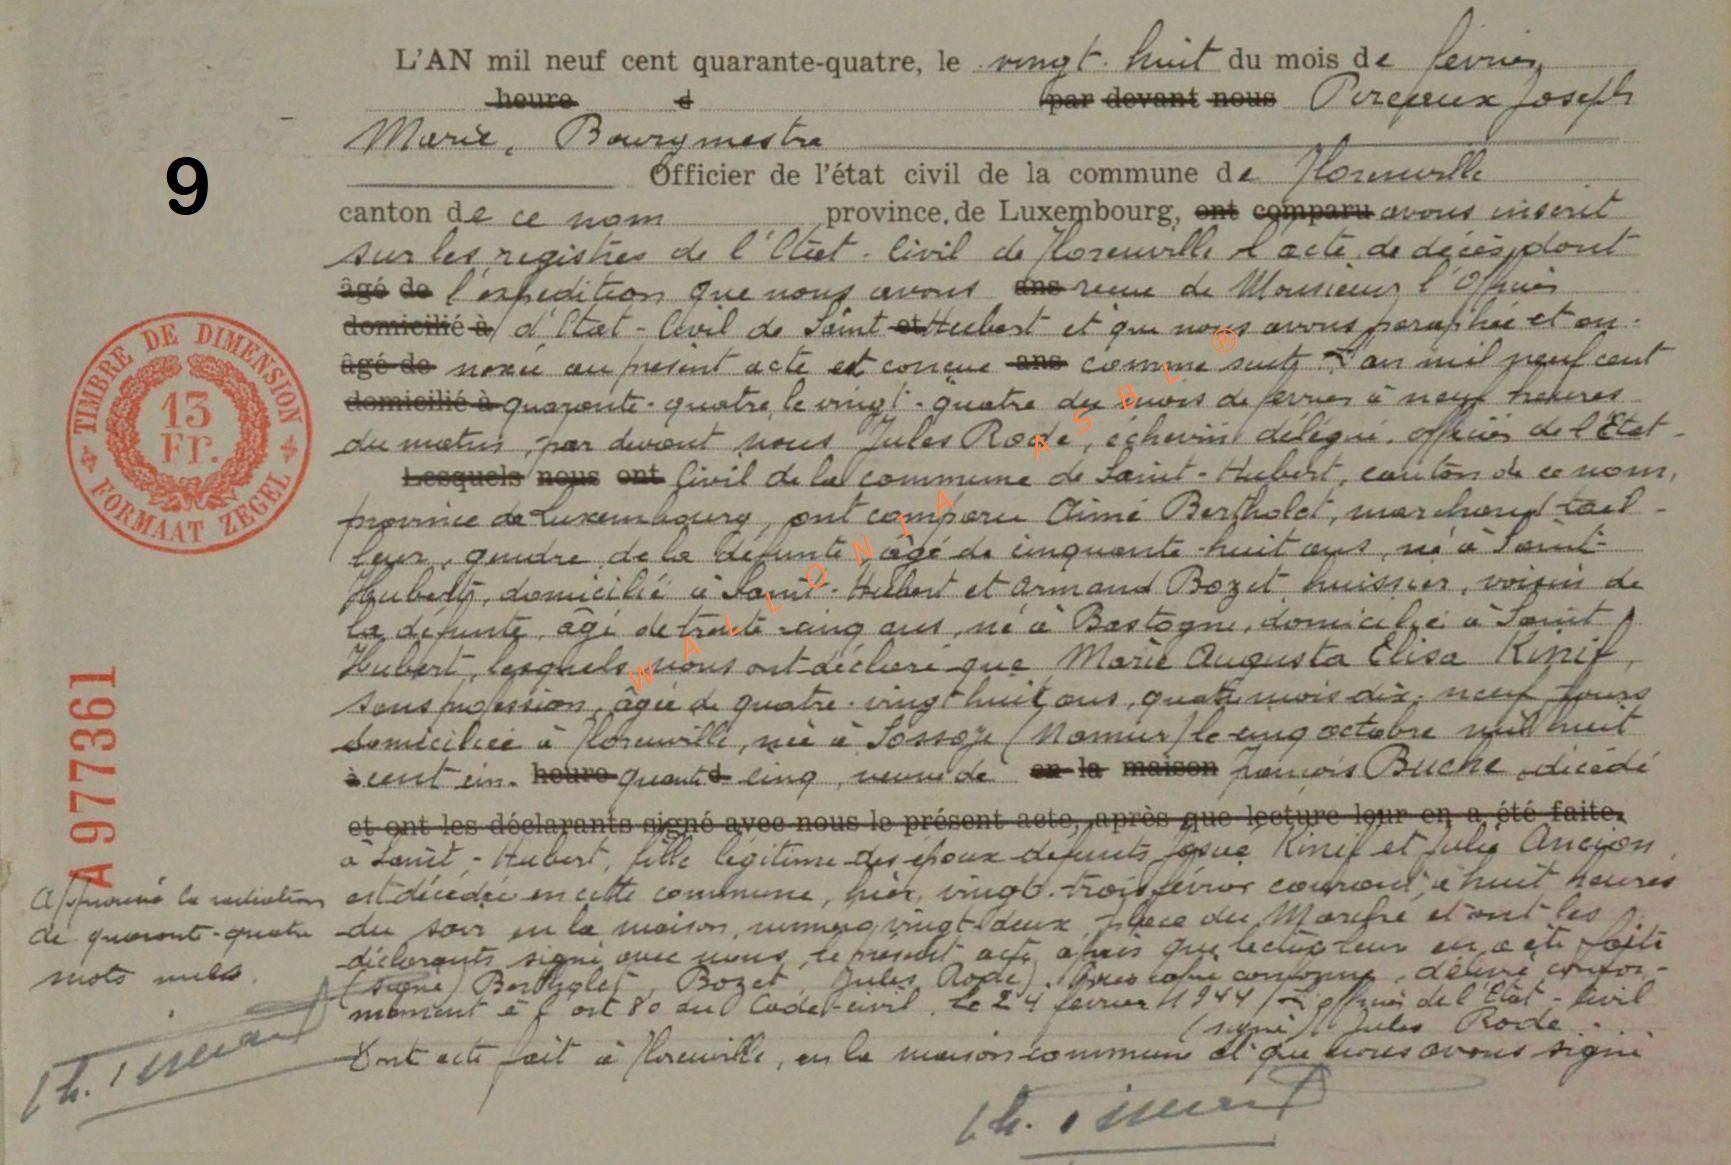 L'AN mil neuf cent quarante-quatre, le vingt-huit du mois de février
heure d par devant nous Joseph
Marie, Bourgmestre
Officier de l'état civil de la commune de Florenville
canton de ce nom province de Luxembourg, ont comparu avons inscrit
9
sur les registres de l'Etat-Civil de Florenville l'acte de décès dont
âgé de l'expédition que nous avons ans reçue de Monsieur l'Officier
domicilié à d'Etat-Civil de Saint et Hubert et que nous avons paraphée et an-
âgé de nexée au présent acte est conçue ans comme suit : L'an mil neuf cent
domicilié à quarante-quatre, le vingt-quatre du mois de février à neuf heures
du matin, par devant nous Jules Rode, échevin délégué, officier de l'Etat-
Lesquels nous ont Civil de la commune de Saint-Hubert, canton de ce nom,
province de Luxembourg, ont comparu Aimé Bertholet, marchand tail-
leur, gendre de la défunte âgé de cinquante-huit ans, né à Saint-
Hubert, domicilié à Saint-Hubert et Armand Bozet, huissier, voisin de
la défunte, âgé de trente-cinq ans, né à Bastogne, domicilié à Saint
Hubert, lesquels nous ont déclaré que Marie Augusta Elisa Kinif,
sans profession, âgée de quatre-vingt huit ans, quatre mois dix-neuf jours
domiciliée à Florenville, née à Sosoye (Namur) le cinq octobre mil huit
à cent cin- heure quante d cinq, veuve de en la maison François Buche, décédé
et ont les déclarants signé avec nous le présent acte, après que lecture leur en a été faite.
à Saint-Hubert, fille légitime des époux défunts Josué Kinif et Julie Ancion,
est décédée en cette commune, hier, vingt-trois février courant, à huit heures
du soir en la maison, numéro vingt-deux, place du Marché et ont les
déclarants signé avec nous, le présent acte après que lecture leur en a été faite
(signé) Bertholet, Bozet, Jules Rode). Pour copie conforme, délivré confor-
mément à l'art 80 du Code-civil. Le 24 février 1944 / L'officier de l'Etat-Civil
(signé) Jules Rode
Dont acte fait à Florenville, en la maison commune et que nous avons signé
Approuvé la radiation
de quarante-quatre
mots nuls.
TIMBRE DE DIMENSION
13
Fr.
FORMAAT ZEGEL
A977361
WALLONIA ASBL ®